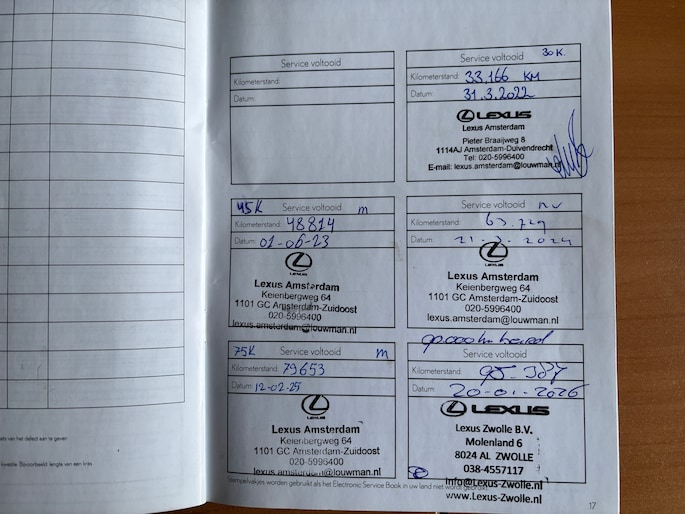 Service voltooid
Kilometerstand:
Datum:
Service voltooid 30K.
Kilometerstand: 33.166 KM
Datum: 31.3.2022
LEXUS
Lexus Amsterdam
Pieter Braaijweg 8
1114AJ Amsterdam-Duivendrecht
Tel: 020-5996400
E-mail: lexus.amsterdam@louwman.nl
45K Service voltooid m
Kilometerstand: 48814
Datum: 01-06-23
LEXUS
Lexus Amsterdam
Keienbergweg 64
1101 GC Amsterdam-Zuidoost
020-5996400
lexus.amsterdam@louwman.nl
Service voltooid
Kilometerstand: 63.729
Datum: 21-3-2024
LEXUS
Lexus Amsterdam
Keienbergweg 64
1101 GC Amsterdam-Zuidoost
020-5996400
lexus.amsterdam@louwman.nl
75K Service voltooid m
Kilometerstand: 79653
Datum: 12-02-25
LEXUS
Lexus Amsterdam
Keienbergweg 64
1101 GC Amsterdam-Zuidoost
020-5996400
lexus.amsterdam@louwman.nl
90.000 km beurt
Service voltooid
Kilometerstand: 95-387
Datum: 20-01-2026
LEXUS
Lexus Zwolle B.V.
Molenland 6
8024 AL ZWOLLE
038-4557117
info@Lexus-Zwolle.nl
www.Lexus-Zwolle.nl
Stempelvakjes worden gebruikt als het Electronic Service Book in uw land niet wordt gebruikt.
17